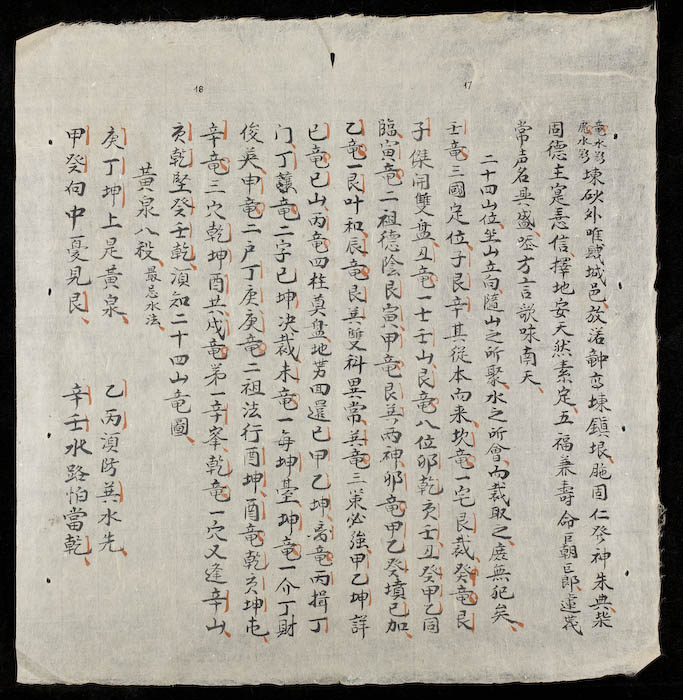 17
竜水彩
虎水彩 埬砂外唯國城邑放渃𨫊峦埬鎮垠胣固仁發神朱典柴
固德主寔恴信擇地安天然素定五福兼壽命巨朝巨郎蓮茂
常声名興盛登方言歌味南天
二十四山位坐山立向隨山之所聚水之所會而裁取之庶無犯矣
壬竜三國定位子艮辛其從本向来坎竜一宅艮裁癸竜艮
子傑開雙盘丑竜一士壬山艮竜八位邜乾亥壬丑癸甲乙同
臨寅竜二祖德陰艮寅甲竜艮巽丙神邜竜甲乙癸墳已加
乙竜一艮叶和辰竜艮巽雙科異常巽竜三策必強甲乙坤詳
已竜巳山丙竜四柱奠盘地势回還已甲乙坤离竜丙揖丁
门丁讓竜二字已坤决裁未竜一每坤䑓坤竜一介丁財
俊英申竜二户丁庚庚竜二祖法行酉坤酉竜乾亥坤屯
辛竜三穴乾坤酉共戌竜第一辛峯乾竜一穴又逢辛山
亥乾堅癸壬乾湏知二十四山竜圖
18
黃泉八殺 最忌水法
庚丁坤上是黃泉 乙丙湏防巽水先
甲癸向中憂見艮 辛壬水路怕當乾